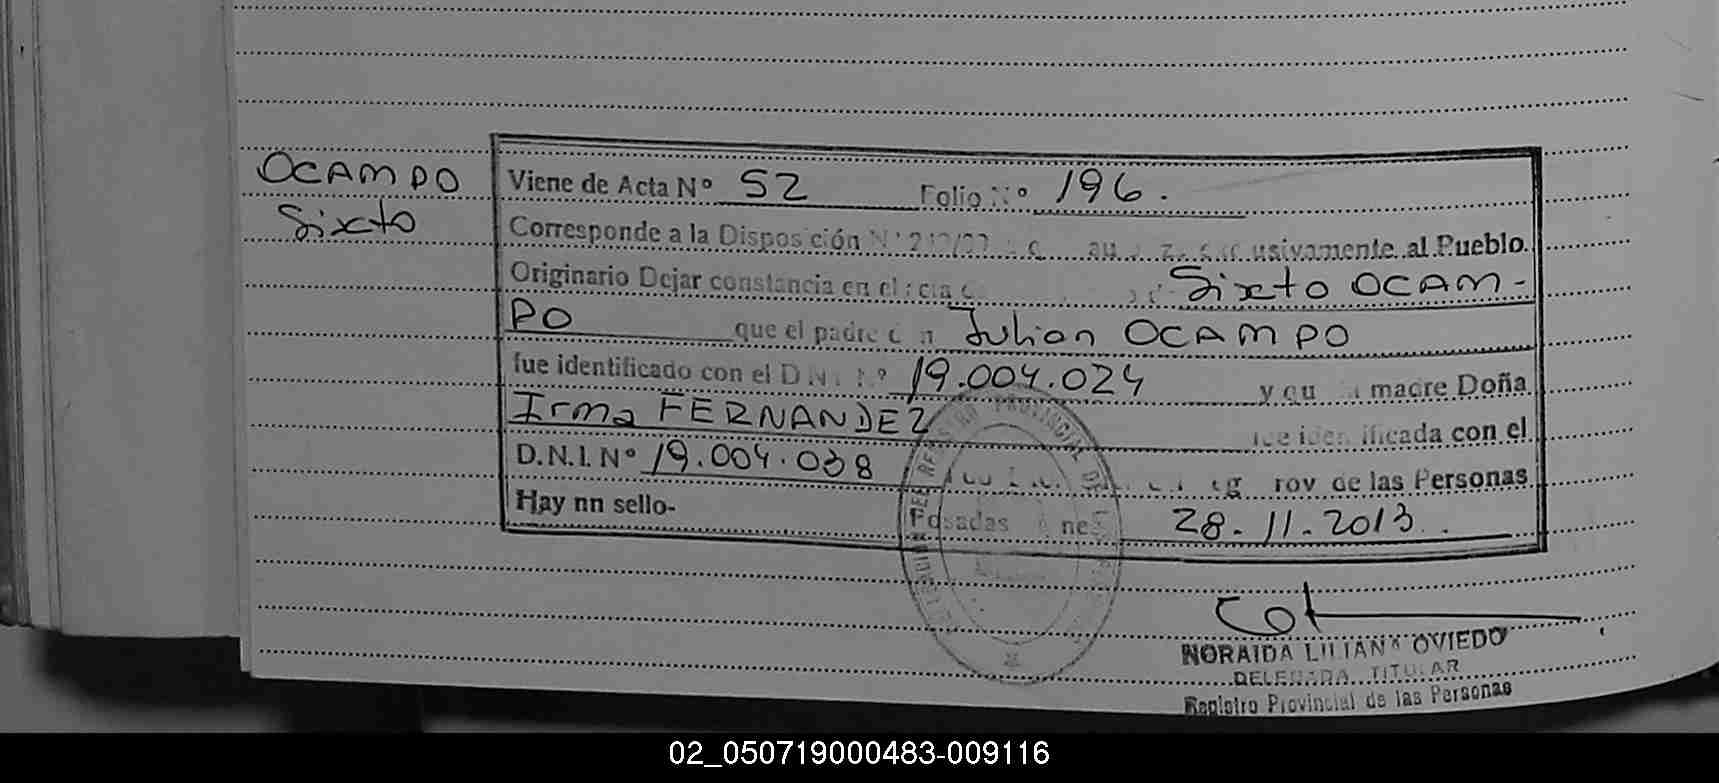 OCAMPO
Sixto
Viene de Acta Nº 52 Folio Nº 196.
Corresponde a la Disposición usivamente al Pueblo
Originario Dejar constancia en el Sixto OCAM-
PO que el padre Julian OCAMPO
fue identificado con el D.N.I. Nº 19.004.024 y madre Doña
Irma FERNANDEZ identificada con el
D.N.I. Nº 19.004.038 de las Personas
Hay nn sello- Posadas 28-11-2013.
REGISTRO PROVINCIAL DE
NORAIDA LILIANA OVIEDO
DELEGADA TITULAR
Registro Provincial de las Personas
02_050719000483-009116